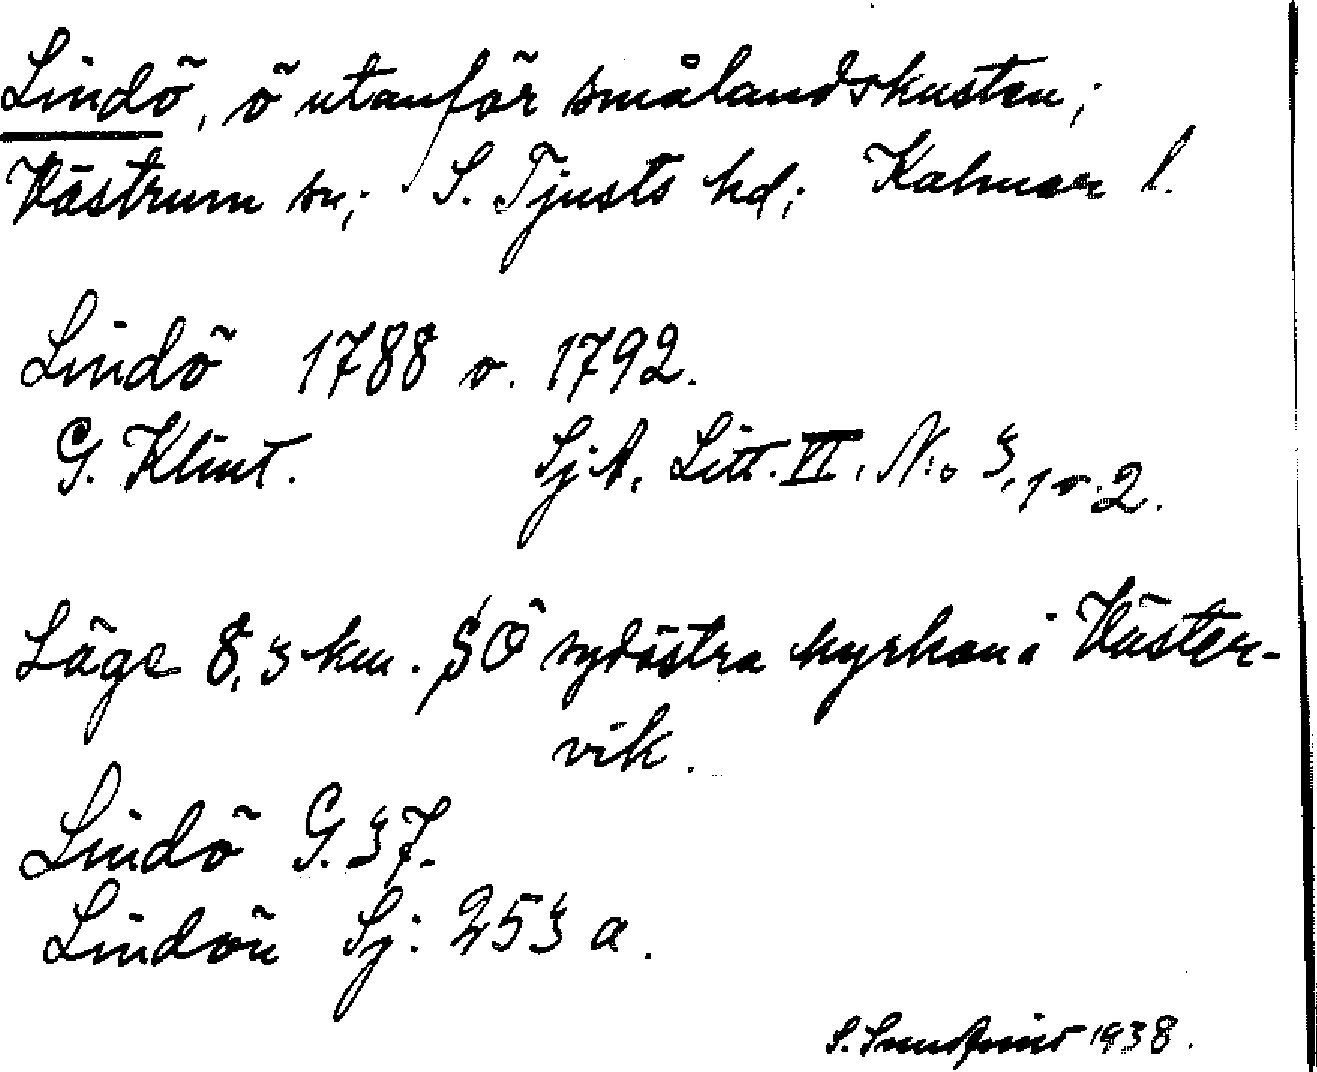 Lindö, ö utanför smålandskusten;
Västrum sn; S. Tjusts hd; Kalmar l.
Lindö 1788 o. 1792.
G. Klint. SjA. Litt. VI. N:o 3, 1 o. 2.
Läge 8,3 km. SÖ sydöstra kyrkan i Väster-
vik.
Lindö G. 37.
Lindön Sj: 253 a.
S. 1938.